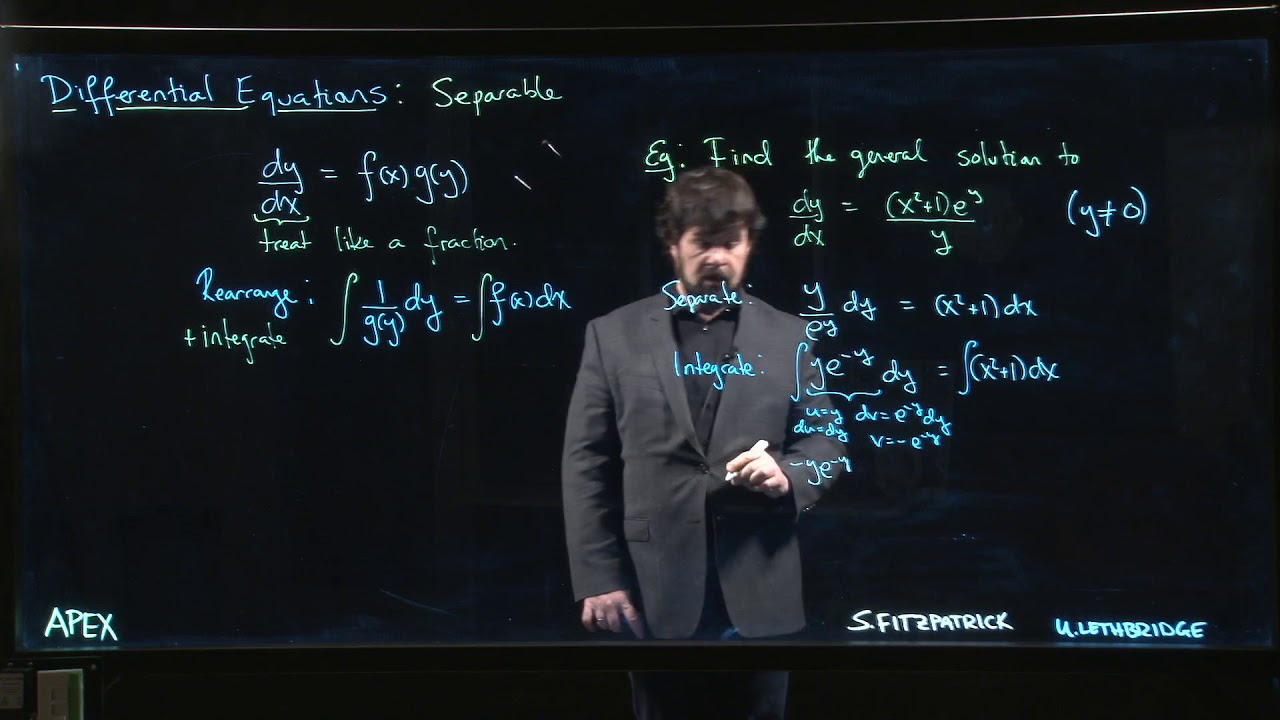 Differential Equations: Separable
dy/dx = f(x) g(y)
treat like a fraction.
Rearrange: ∫ 1/g(y) dy = ∫ f(x) dx
+ integrate
Eg: Find the general solution to
dy/dx = (x²+1)e^y / y (y ≠ 0)
Separate: y/e^y dy = (x²+1) dx
Integrate: ∫ ye^-y dy = ∫ (x²+1) dx
u=y dv=e^-y dy
du=dy v=-e^-y
-ye^-y
APEX
S.FITZPATRICK
U.LETHBRIDGE